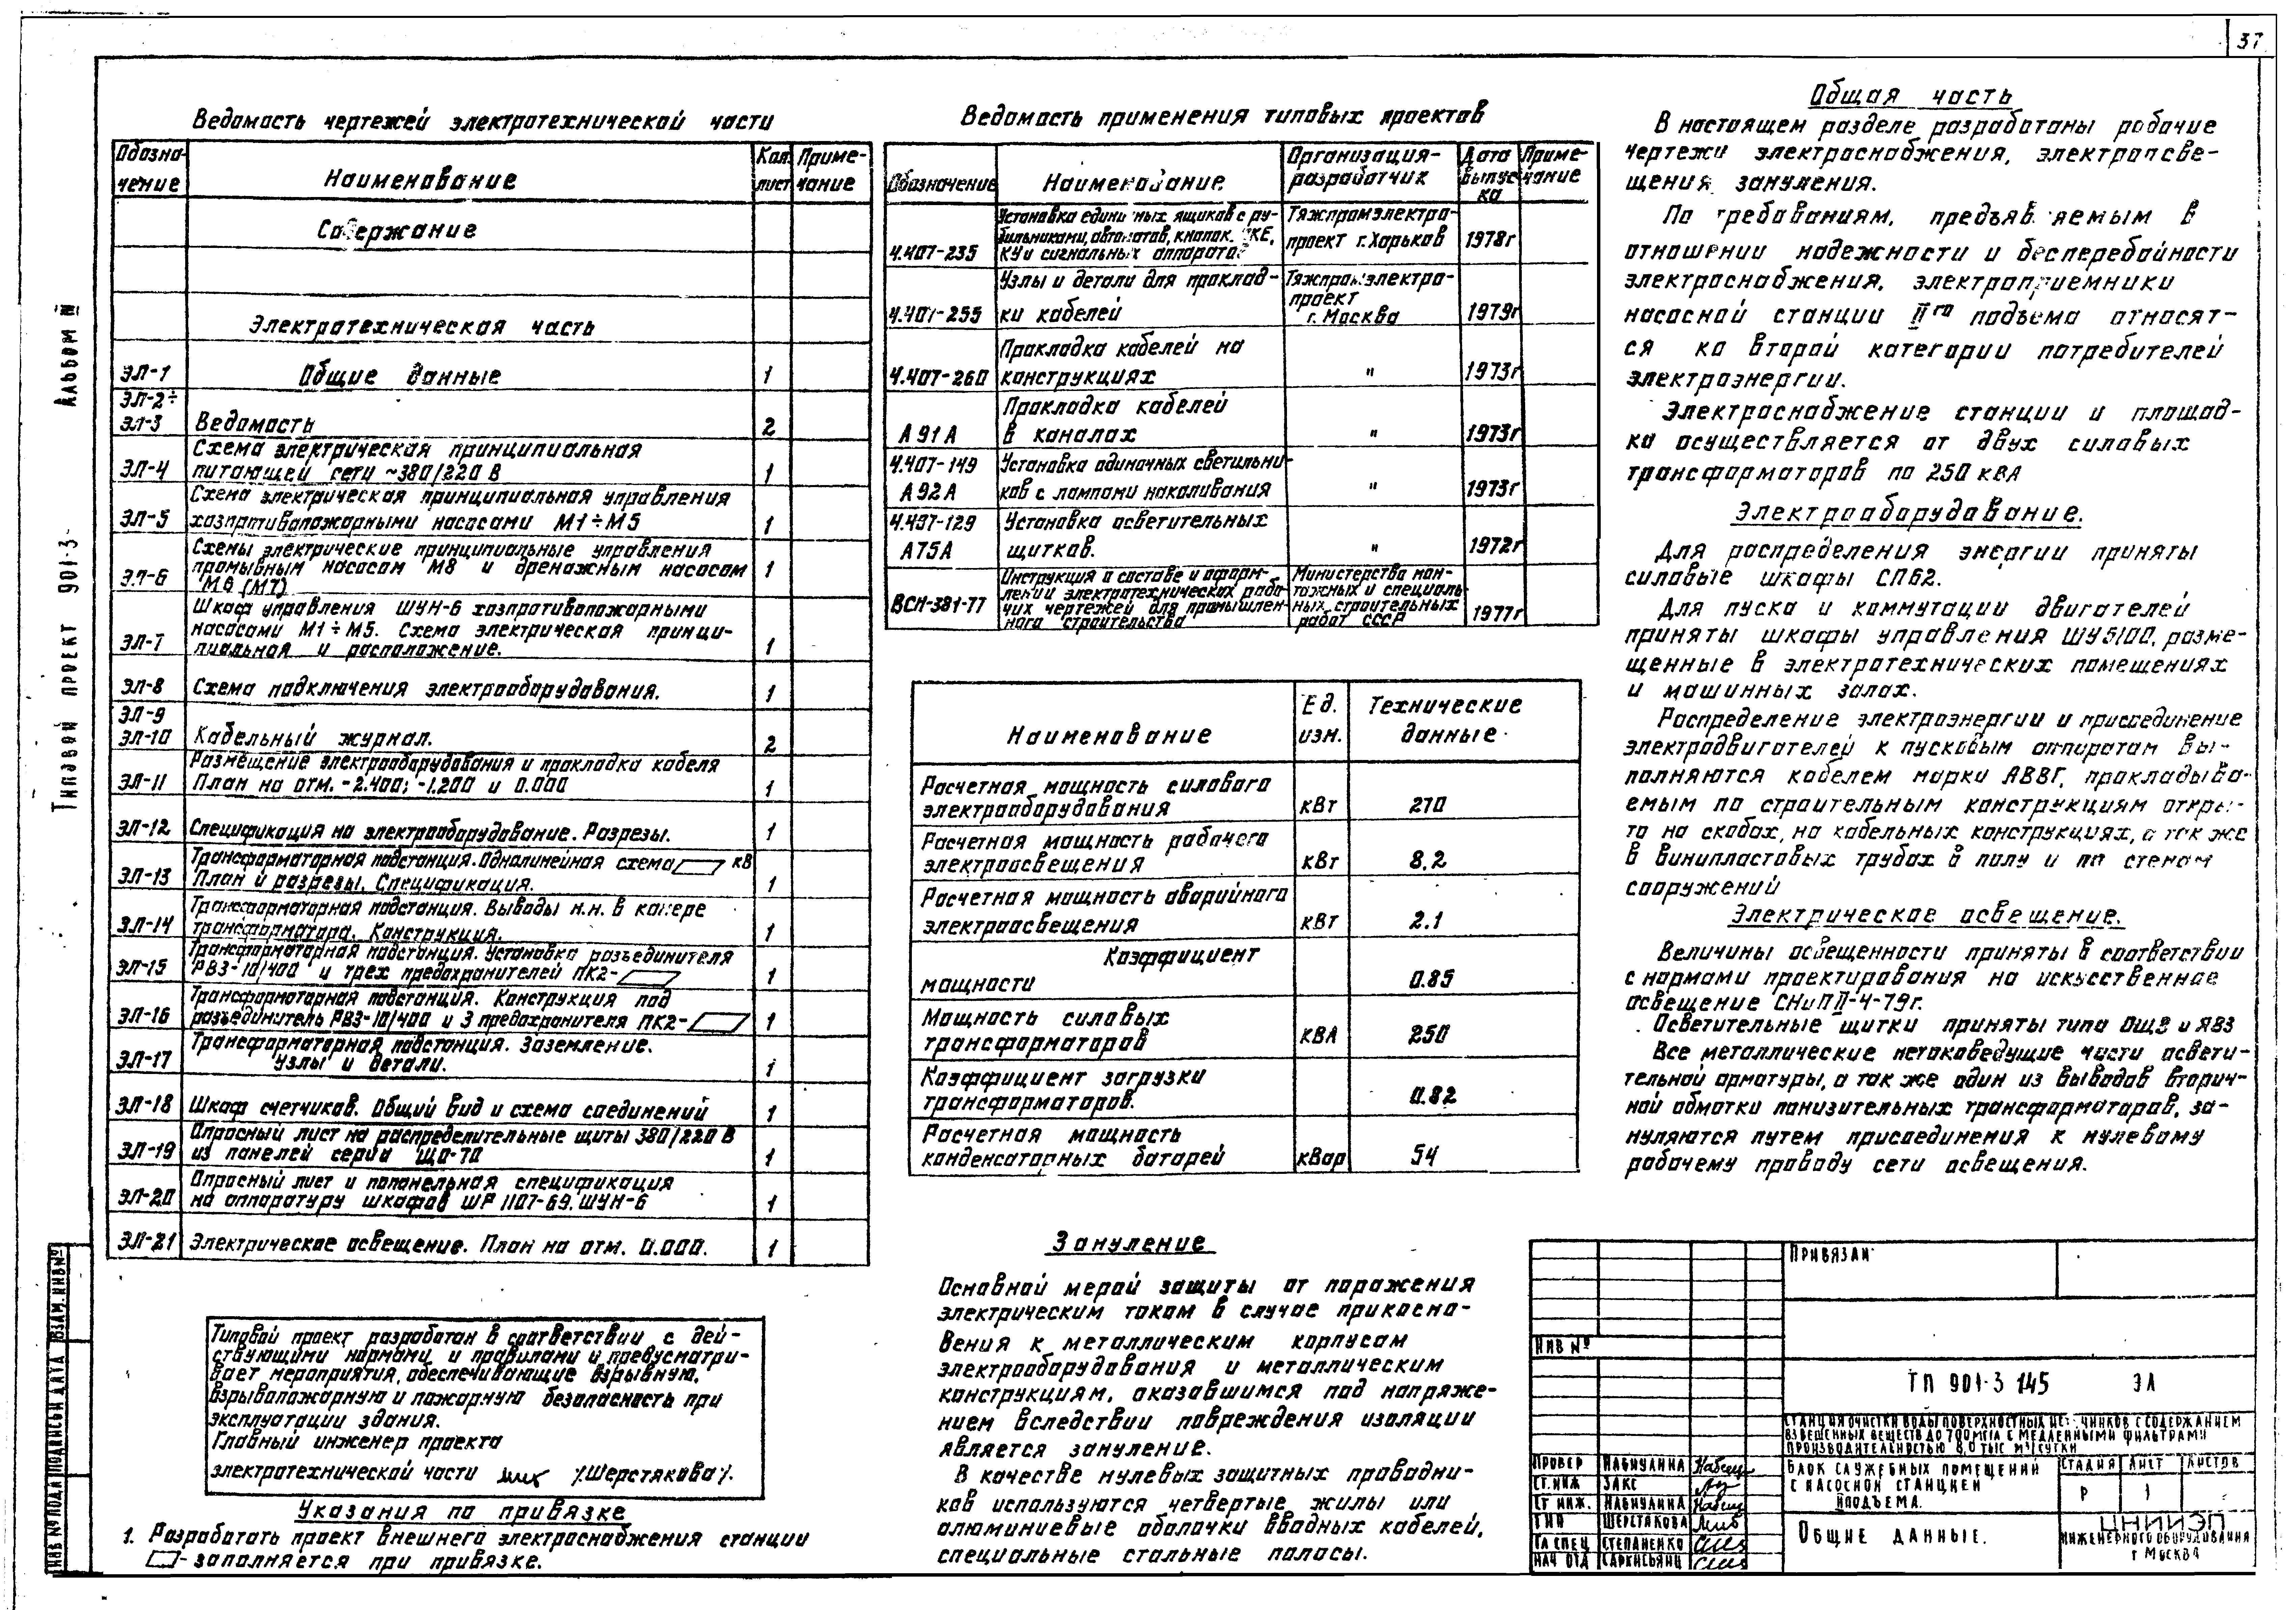 37
Ведомость чертежей электротехнической части
Обозна-
чение
Наименование
Кол.
лист
Приме-
чание
Содержание
Электротехническая часть
ЭЛ-1 Общие данные 1
ЭЛ-2÷
ЭЛ-3 Ведомость 2
Схема электрическая принципиальная
ЭЛ-4 питающей сети ~380/220 В 1
Схема электрическая принципиальная управления
ЭЛ-5 хозпротивопожарными насосами М1÷М5 1
Схемы электрические принципиальные управления
промывным насосом М8 и дренажным насосом
ЭЛ-6 М6 (М7) 1
Шкаф управления ШУН-6 хозпротивопожарными
насосами М1÷М5. Схема электрическая принци-
ЭЛ-7 пиальная и расположение. 1
ЭЛ-8 Схема подключения электрооборудования. 1
ЭЛ-9
ЭЛ-10 Кабельный журнал. 2
Размещение электрооборудования и прокладка кабеля
ЭЛ-11 План на отм. -2.400; -1.200 и 0.000 1
ЭЛ-12 Спецификация на электрооборудование. Разрезы. 1
Трансформаторная подстанция. Однолинейная схема кВ
ЭЛ-13 План и разрезы. Спецификация. 1
Трансформаторная подстанция. Выводы н.н. в камере
ЭЛ-14 трансформатора. Конструкция. 1
Трансформаторная подстанция. Установка разъединителя
ЭЛ-15 РВЗ-10/400 и трех предохранителей ПК2- 1
Трансформаторная подстанция. Конструкция под
ЭЛ-16 разъединитель РВЗ-10/400 и 3 предохранителя ПК2- 1
Трансформаторная подстанция. Заземление.
ЭЛ-17 Узлы и детали. 1
ЭЛ-18 Шкаф счетчиков. Общий вид и схема соединений 1
Опросный лист на распределительные щиты 380/220 В
ЭЛ-19 из панелей серии ЩО-70 1
Опросный лист и попанельная спецификация
ЭЛ-20 на аппаратуру шкафов ШР 1107-69, ШУН-6 1
ЭЛ-21 Электрическое освещение. План на отм. 0.000. 1
Типовой проект разработан в соответствии с дей-
ствующими нормами и правилами и предусматри-
вает мероприятия, обеспечивающие взрывную,
взрывопожарную и пожарную безопасность при
эксплуатации здания.
Главный инженер проекта
электротехнической части /Шерстякова/.
Указания по привязке
1. Разработать проект внешнего электроснабжения станции
- заполняется при привязке.
Ведомость применения типовых проектов
Обозначение
Наименование
Организация-
разработчик
Дата
выпус
ка
Приме-
чание
Установка единичных ящиков с ру-
бильниками, автоматов, кнопок ПКЕ,
4.407-235 КУ и сигнальных аппаратов
Тяжпромэлектро-
проект г. Харьков 1978г
Узлы и детали для проклад-
4.407-255 ки кабелей
Тяжпромэлектро-
проект
г. Москва 1979г
Прокладка кабелей на
4.407-260 конструкциях " 1973г
Прокладка кабелей
А91А в каналах " 1973г
4.407-149 Установка одиночных светильни-
А92А ков с лампами накаливания " 1973г
4.407-129 Установка осветительных
А75А щитков. " 1972г
Инструкция о составе и оформ-
лении электротехнических рабо-
ВСН-381-77 чих чертежей для промышлен-
ного строительства
Министерство мон-
тажных и специаль-
ных строительных
работ СССР 1977г
Наименование
Ед.
изм.
Технические
данные
Расчетная мощность силового
электрооборудования кВт 270
Расчетная мощность рабочего
электроосвещения кВт 8.2
Расчетная мощность аварийного
электроосвещения кВт 2.1
Коэффициент
мощности 0.85
Мощность силовых
трансформаторов кВА 250
Коэффициент загрузки
трансформаторов. 0.82
Расчетная мощность
конденсаторных батарей кВар 54
Зануление
Основной мерой защиты от поражения
электрическим током в случае прикосно-
вения к металлическим корпусам
электрооборудования и металлическим
конструкциям, оказавшимся под напряже-
нием вследствии повреждения изоляции
является зануление.
В качестве нулевых защитных проводни-
ков используются четвертые жилы или
алюминиевые оболочки вводных кабелей,
специальные стальные полосы.
Общая часть
В настоящем разделе разработаны рабочие
чертежи электроснабжения, электроосве-
щения, зануления.
По требованиям, предъявляемым в
отношении надежности и бесперебойности
электроснабжения, электроприемники
насосной станции II го подъема относят-
ся ко второй категории потребителей
электроэнергии.
Электроснабжение станции и площад-
ки осуществляется от двух силовых
трансформаторов по 250 кВА
Электрооборудование.
Для распределения энергии приняты
силовые шкафы СП62.
Для пуска и коммутации двигателей
приняты шкафы управления ШУ5100, разме-
щенные в электротехнических помещениях
и машинных залах.
Распределение электроэнергии и присоединение
электродвигателей к пусковым аппаратам вы-
полняются кабелем марки АВВГ, прокладыва-
емым по строительным конструкциям откры-
то на скобах, на кабельных конструкциях, а так же
в винипластовых трубах в полу и по стенам
сооружений
Электрическое освещение.
Величины освещенности приняты в соответствии
с нормами проектирования на искусственное
освещение СНиП II-4-79г.
Осветительные щитки приняты типа ОЩВ и ЯВЗ
Все металлические нетоковедущие части освети-
тельной арматуры, а так же один из выводов вторич-
ной обмотки понизительных трансформаторов, за-
нуляются путем присоединения к нулевому
рабочему проводу сети освещения.
Привязан
Инв №
ТП 901-3 145 ЭЛ
Станция очистки воды поверхностных источников с содержанием
взвешенных веществ до 700 мг/л с медленными фильтрами
производительностью 8,0 тыс м³/сутки
Провер Набиулина
Ст. инж Закс
Ст инж. Набиулина
ГИП Шерстякова
Гл спец Степаненко
Нач отд Саркисьянц
Блок служебных помещений
с насосной станцией
II подъема.
Стадия Лист Листов
Р 1
Общие данные.
ЦНИИЭП
инженерного оборудования
г Москва
Типовой проект 901-3- Альбом IV
Инв № подл Подпись и дата Взам. инв №